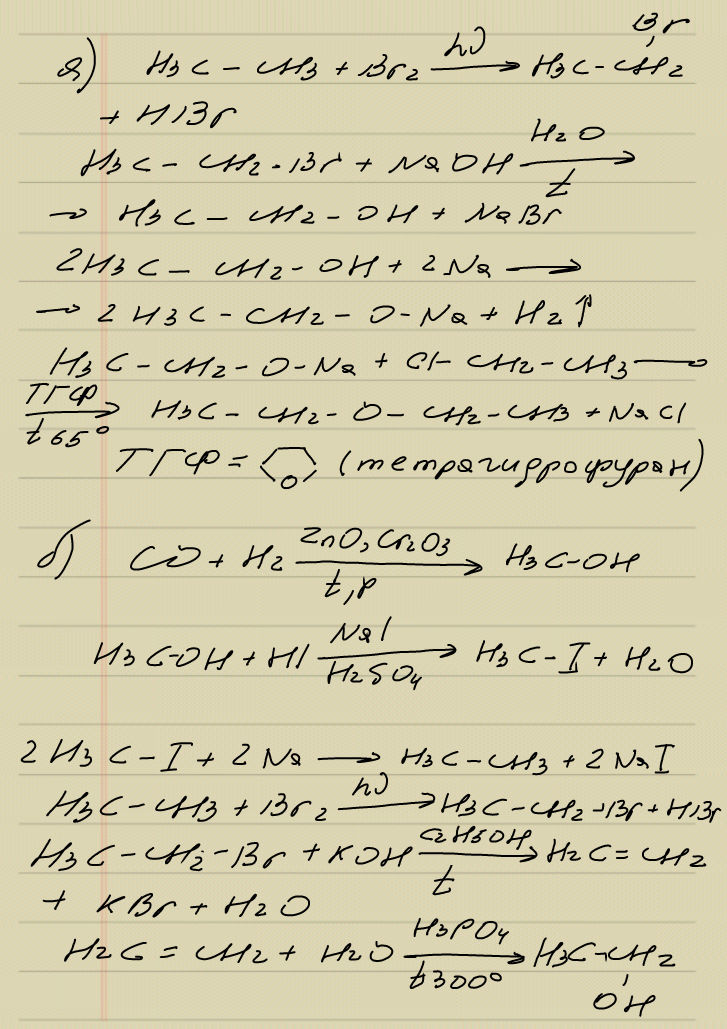 а) H3C - CH3 + Br2 —hν→ H3C - CH2
Br
+ HBr
H3C - CH2 - Br + NaOH —H2O, t→
→ H3C - CH2 - OH + NaBr
2H3C - CH2 - OH + 2Na →
→ 2H3C - CH2 - O - Na + H2↑
H3C - CH2 - O - Na + Cl - CH2 - CH3 →
—ТГФ, t 65°→ H3C - CH2 - O - CH2 - CH3 + NaCl
ТГФ = O (тетрагидрофуран)
б) CO + H2 —ZnO, Cr2O3, t, p→ H3C - OH
H3C - OH + HI —NaI, H2SO4→ H3C - I + H2O
2H3C - I + 2Na → H3C - CH3 + 2NaI
H3C - CH3 + Br2 —hν→ H3C - CH2 - Br + HBr
H3C - CH2 - Br + KOH —C2H5OH, t→ H2C = CH2
+ KBr + H2O
H2C = CH2 + H2O —H3PO4, t 300°→ H3C - CH2
OH